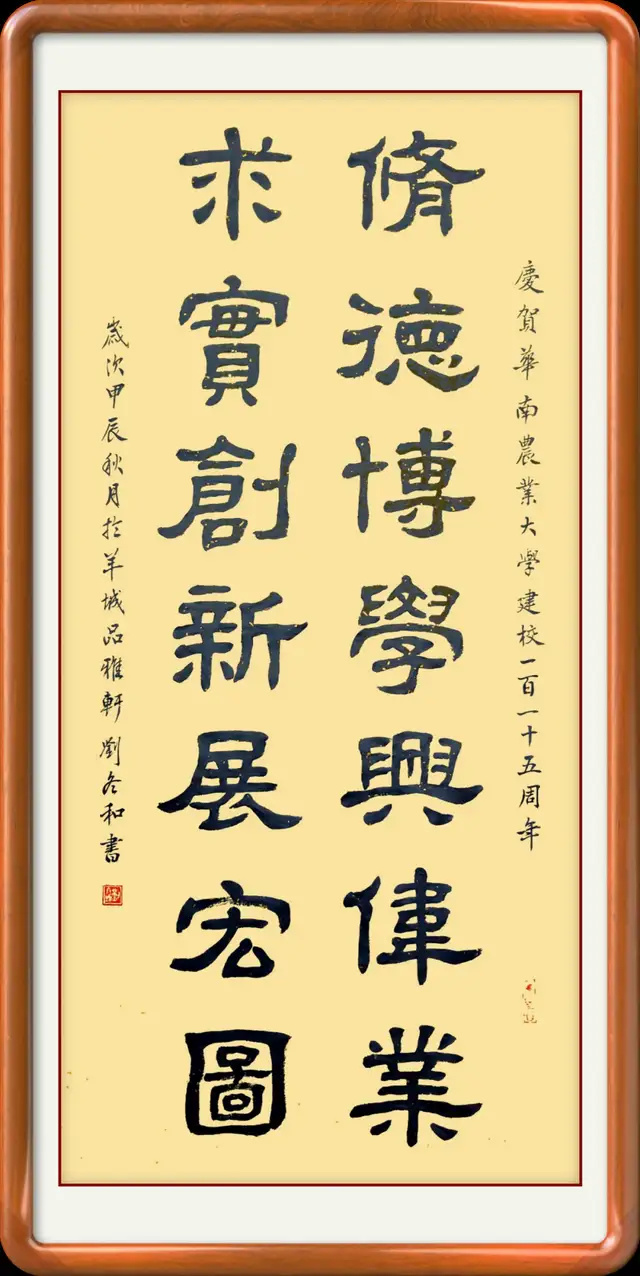 慶賀華南農業大學建校一百一十五周年
脩德博學興偉業
求實創新展宏圖
歲次甲辰秋月於羊城品雅軒劉冬和書